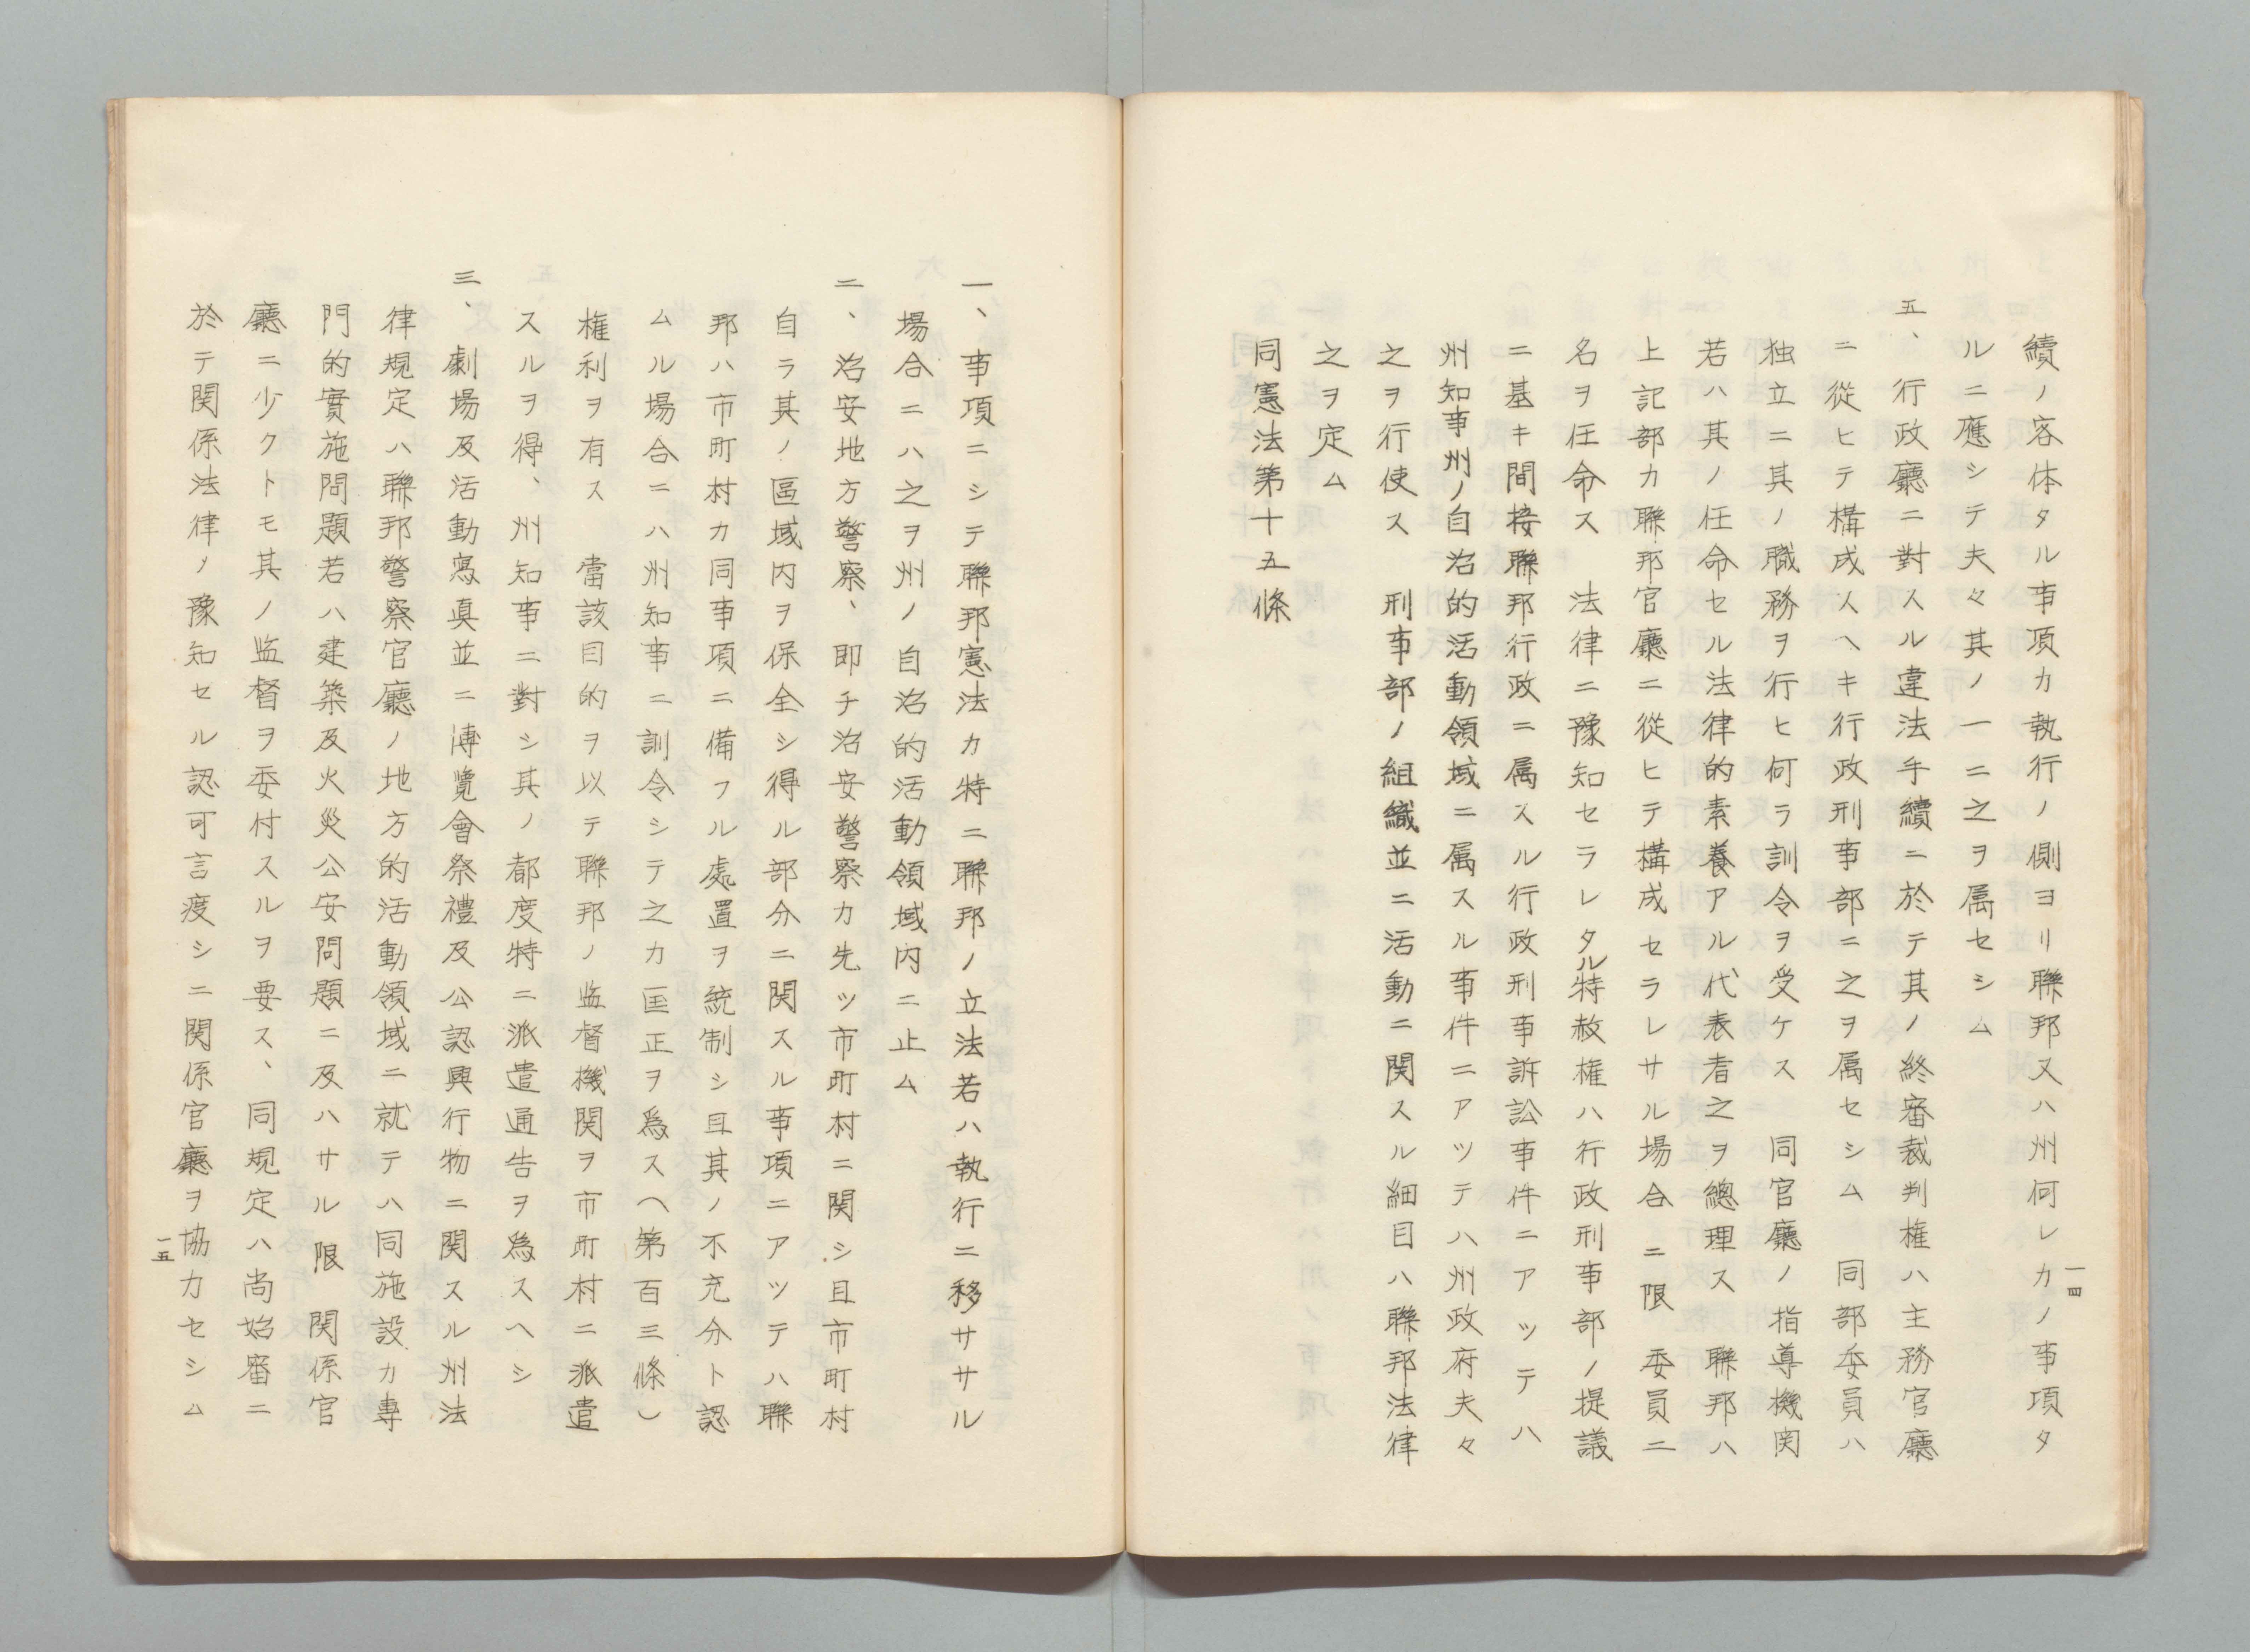 續ノ客体タル事項カ執行ノ側ヨリ聯邦又ハ州何レカノ事項タ
ルニ應シテ夫々其ノ一ニ之ヲ属セシム
五、行政廳ニ對スル違法手續ニ於テ其ノ終審裁判權ハ主務官廳
ニ從ヒテ構成スヘキ行政刑事部ニ之ヲ属セシム　同部委員ハ
独立ニ其ノ職務ヲ行ヒ何ラ訓令ヲ受ケス　同官廳ノ指導機関
若ハ其ノ任命セル法律的素養アル代表者之ヲ總理ス　聯邦ハ
上記部カ聯邦官廳ニ從ヒテ構成セラレサル場合ニ限　委員二
名ヲ任命ス　法律ニ豫知セラレタル特赦権ハ行政刑事部ノ提議
ニ基キ間接聯邦行政ニ属スル行政刑事訴訟事件ニアツテハ
州知事州ノ自治的活動領域ニ属スル事件ニアツテハ州政府夫々
之ヲ行使ス　刑事部ノ組織並ニ活動ニ関スル細目ハ聯邦法律
之ヲ定ム
同憲法第十五條
一四
一、事項ニシテ聯邦憲法カ特ニ聯邦ノ立法若ハ執行ニ移ササル
場合ニハ之ヲ州ノ自治的活動領域内ニ止ム
二、治安地方警察、即チ治安警察カ先ツ市町村ニ関シ且市町村
自ラ其ノ區域内ヲ保全シ得ル部分ニ関スル事項ニアツテハ聯
邦ハ市町村カ同事項ニ備フル處置ヲ統制シ且其ノ不充分ト認
ムル場合ニハ州知事ニ訓令シテ之カ匡正ヲ爲ス（第百三條）
権利ヲ有ス　當該目的ヲ以テ聯邦ノ監督機関ヲ市町村ニ派遣
スルヲ得、州知事ニ對シ其ノ都度特ニ派遣通告ヲ爲スヘシ
三、劇場及活動寫真並ニ博覽會祭禮及公認興行物ニ関スル州法
律規定ハ聯邦警察官廳ノ地方的活動領域ニ就テハ同施設カ專
門的實施問題若ハ建築及火災公安問題ニ及ハサル限　関係官
廳ニ少クトモ其ノ監督ヲ委付スルヲ要ス、同規定ハ尚始審ニ
於テ関係法律ノ豫知セル認可言渡シニ関係官廳ヲ協力セシム
一五